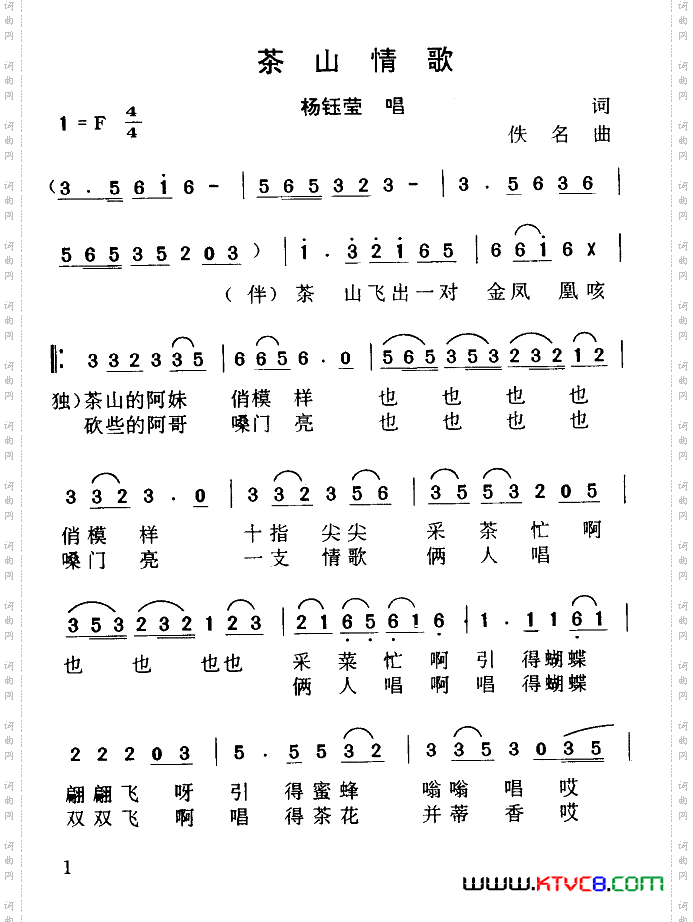 茶山情歌
杨钰莹 唱 词
1=F 4/4 佚名 曲
(3·5616- | 565323- | 3·5636 |
56535203) | 1·32165 | 6616X |
(伴)茶 山飞出一对 金凤 凰咳
‖: 3323335 | 6656·0 | 56535323212 |
独)茶山的阿妹 俏模样 也 也 也 也
砍些的阿哥 嗓门亮 也 也 也 也
3323·0 | 3323356 | 3553205 |
俏模样 十指尖尖 采茶忙啊
嗓门亮 一支情歌 俩人唱
3532321223 | 21656616 | 1·1161 |
也 也 也也 采菜忙啊引得蝴蝶
俩人唱啊唱得蝴蝶
22203 | 5·5532 | 3353035 |
翩翩飞呀引得蜜蜂 嗡嗡唱哎
双双飞啊唱得茶花 并蒂香哎
1
www.KTVC8.com
词曲网